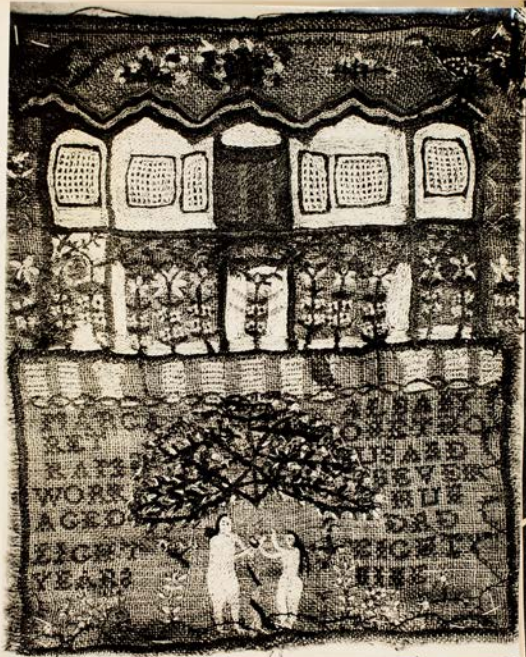 MARGA
RET
RAMS
WORK
AGED
EIGHT
YEARS
ALBANY
ONETHO
USAND
SEVEN
HUN
DRD
EIGHTY
NINE